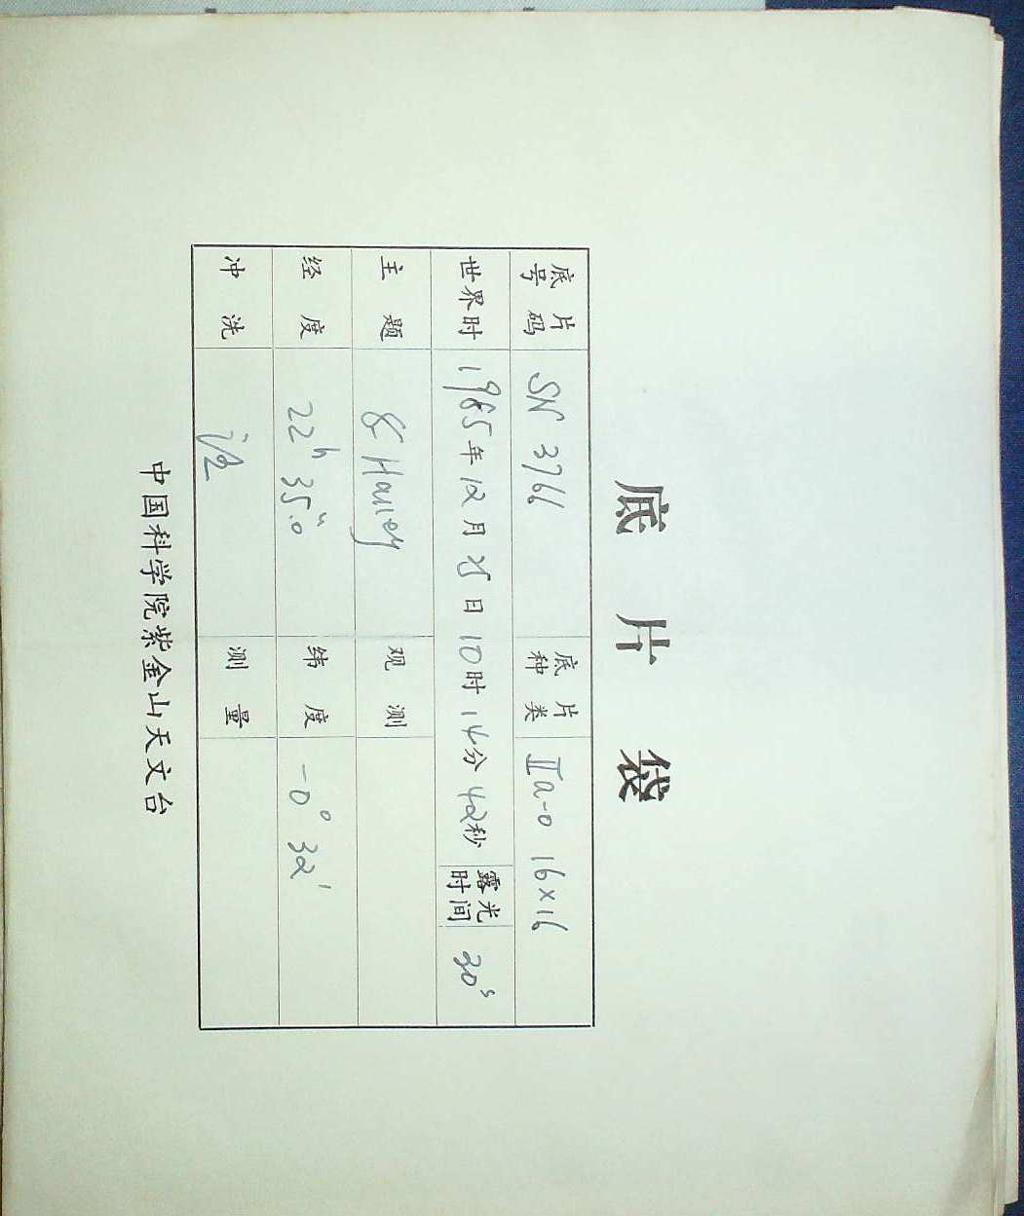 底片袋
底片号码 SN 3766 底片种类 IIa-0 16×16
世界时 1985年12月25日10时14分42秒 露光时间 30s
主题 & Halley 观测
经度 22h 35m.0 纬度 -0° 32'
冲洗 测量
中国科学院紫金山天文台